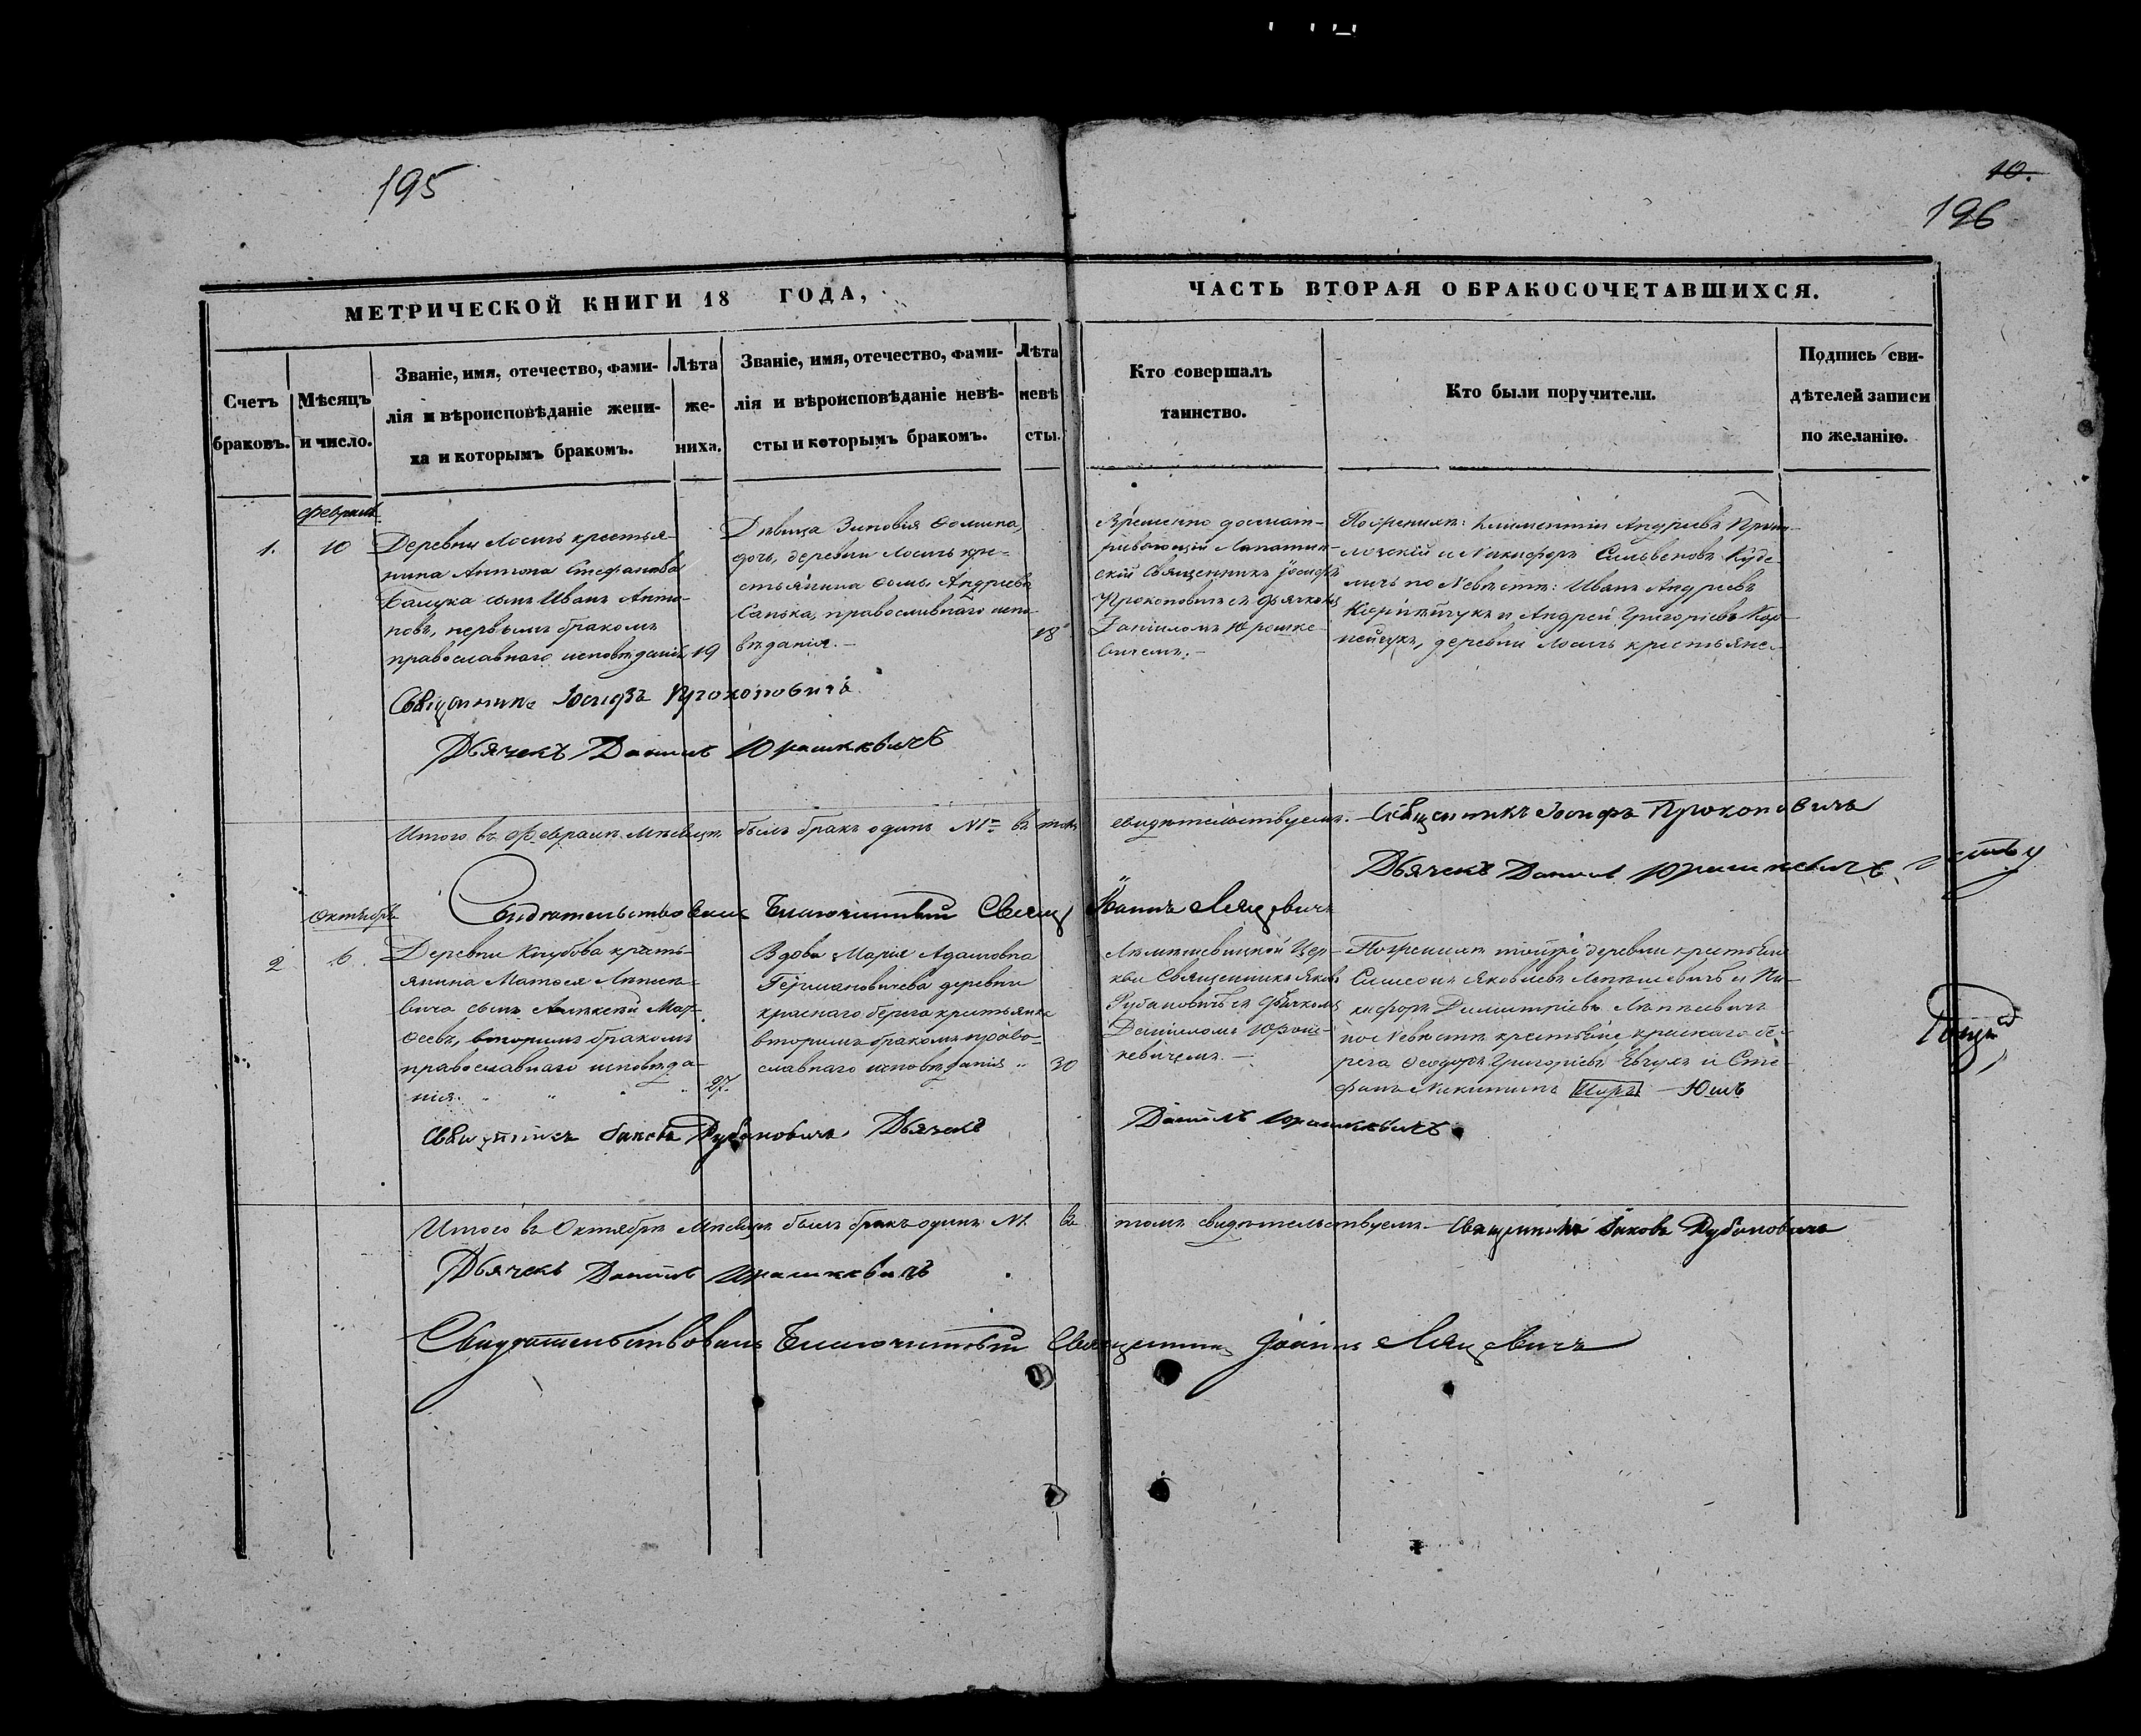 195
10.
196
МЕТРИЧЕСКОЙ КНИГИ 18 ГОДА,
ЧАСТЬ ВТОРАЯ О БРАКОСОЧЕТАВШИХСЯ.
Счетъ
браковъ.
Мѣсяцъ
и число.
Званіе, имя, отечество, фами-
лія и вѣроисповѣданіе жени-
ха и которымъ бракомъ.
Лѣта
же-
ниха.
Званіе, имя, отечество, фами-
лія и вѣроисповѣданіе невѣ-
сты и которымъ бракомъ.
Лѣта
невѣ
сты.
Кто совершалъ
таинство.
Кто были поручители.
Подпись сви-
дѣтелей записи
по желанію.
февраль
1.
10
Деревни Лосичъ крестья-
нина Антона Стефанова
сынъ Иванъ Анто-
новъ, первымъ бракомъ
православнаго исповѣданія
19
Дѣвица Зиновія Фомина
дочь, деревни Лосичъ кре-
стьянина Фомы Андреева
Санька, православнаго испо-
вѣданія.-
18
Временно досмат-
ривающій
скій Священникъ Іосифъ
Прокоповичъ съ Дьячкомъ
Даніиломъ Юрашке-
вичемъ.-
По женихѣ: Климентій Андреевъ
и Никифоръ
по Невѣстѣ: Иванъ Андреевъ
и Андрей Григоріевъ Кор-
нейчукъ, деревни Лосичъ крестьяне.
Священникъ Іосифъ Прокоповичъ
Дьячекъ Даніилъ Юрашкевичъ
Итого въ Февралѣ Мѣсяцѣ былъ бракъ одинъ №1 въ томъ
свидѣтельствуемъ. Священникъ Іосифъ Прокоповичъ
Дьячекъ Даніилъ Юрашкевичъ
Свидѣтельствовалъ Благочинный Священ Іоаннъ Ляцевичъ
Октябрь
2
6.
Деревни крестья-
янина Матфея
вича сынъ Алексѣй Мат-
феевъ, вторымъ бракомъ
православнаго исповѣда-
нія.
27.
Вдова Марія Адамовна
Германовичева деревни
краснаго берега крестьянка
вторымъ бракомъ право-
славнаго исповѣданія
30
Цер-
кви Священникъ Яковъ
Рубановичъ съ Дьячкомъ
Даніиломъ Юраш-
кевичемъ.-
По женихѣ тойже деревни крестьяне
Симеонъ Яковлевъ и Ни-
кифоръ Димитріевъ
по Невѣстѣ крестьяне краснаго бе-
рега Феодоръ Григоріевъ и Сте-
фанъ Никитинъ
Священникъ Іаковъ Рубановичъ Дьячекъ
Даніилъ Юрашкевичъ
Итого въ Октябрѣ Мѣсяцѣ былъ бракъ одинъ №1. въ
томъ свидѣтельствуемъ. Священникъ Іаковъ Рубановичъ
Дьячекъ Даніилъ Юрашкевичъ
Свидѣтельствовалъ Благочинный Священникъ Іоаннъ Ляцевичъ